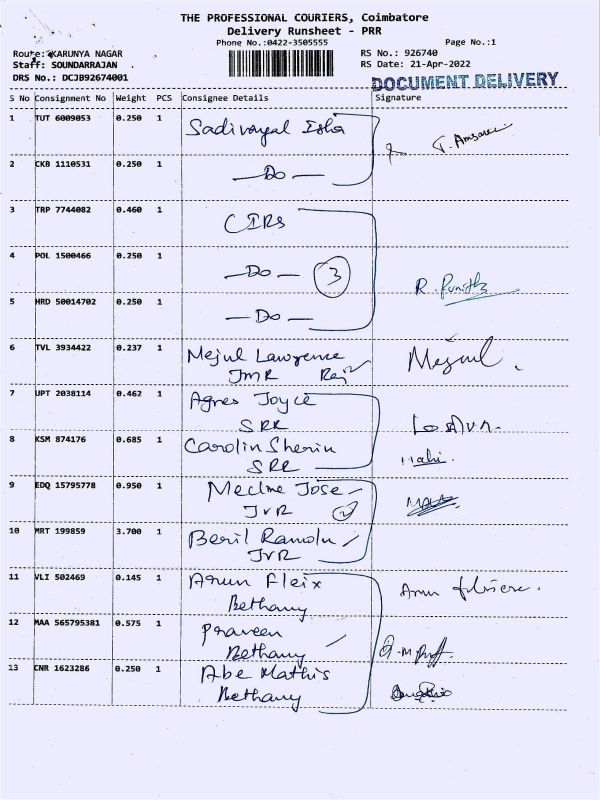 THE PROFESSIONAL COURIERS, Coimbatore
Delivery Runsheet - PRR
Phone No.:0422-3505555 Page No.:1
Route: KARUNYA NAGAR RS No.: 926740
Staff: SOUNDARRAJAN . RS Date: 21-Apr-2022
DRS No.: DCJB92674001
DOCUMENT DELIVERY
S No Consignment No Weight PCS Consignee Details Signature
1 TUT 6009053 0.250 1 Sadivayal Isha T. Amsa
2 CKB 1110531 0.250 1 — Do —
3 TRP 7744082 0.460 1 CIRS
4 POL 1500466 0.250 1 — Do — 3 R. Punitha
5 HRD 50014702 0.250 1 — Do —
6 TVL 3934422 0.237 1 Mejul Lawrence Mejul.
JMR Rej
7 UPT 2038114 0.462 1 Agnes Joyce
SRR
8 KSM 874176 0.685 1 Carolin Sherin
SRR
9 EDQ 15795778 0.950 1 Jose
JVR 2
10 MRT 199859 3.700 1 Beril
JVR
11 VLI 502469 0.145 1 Arun Fleix Arun
Bethany
12 MAA 565795381 0.575 1 Praveen
Bethany
13 CNR 1623286 0.250 1 Abe Mathis
Bethany